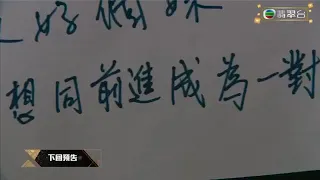 翡翠台
想同前進成為一對
下回預告